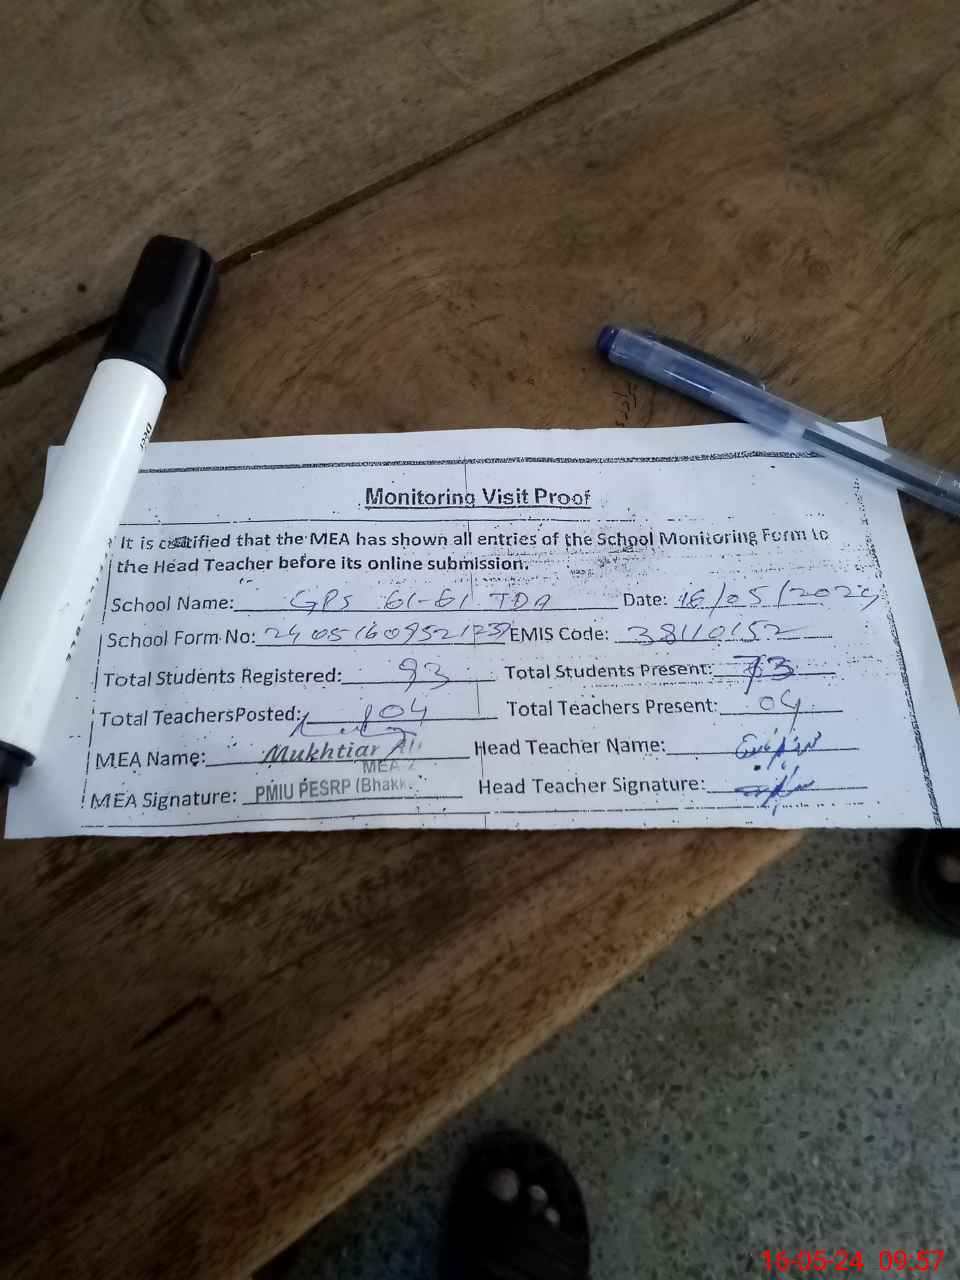 Monitoring Visit Proof
It is certified that the MEA has shown all entries of the School Monitoring Form to
the Head Teacher before its online submission.
School Name: GPS 61-61 TDA Date: 16/05/2024
School Form No: EMIS Code: 38110152
Total Students Registered: 93 Total Students Present: 73
Total TeachersPosted: 04 Total Teachers Present: 04
MEA Name: Mukhtiar Ali Head Teacher Name:
MEA
MEA Signature: PMIU PESRP (Bhakk Head Teacher Signature:
16-05-24 09:57